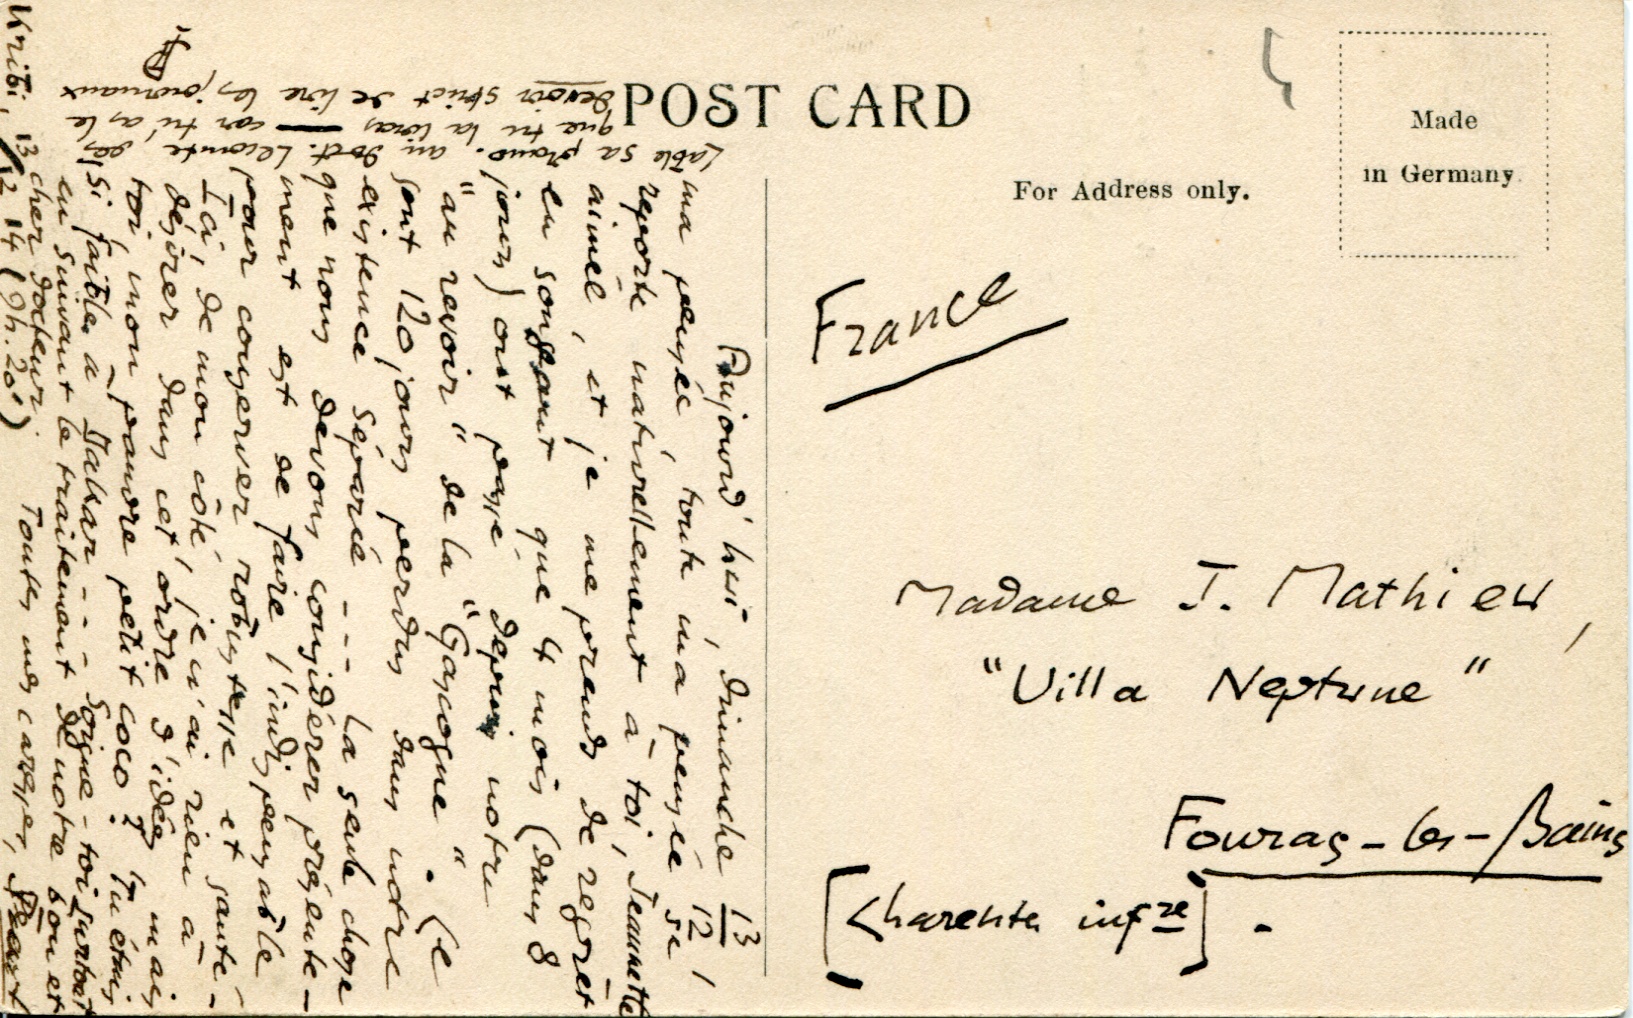 POST CARD
For Address only.
Made
in Germany.
France
Madame J. Mathieu,
"Villa Neptune"
Fouras-les-Bains
[Charente infre] -
Kribi, 13/12 14 (9h.20')
Aujourd'hui, dimanche 13/12,
ma pensée, toute ma pensée se
reporte naturellement à toi, Jeannette
aimée, et je me prends de regret
en songeant que 4 mois (dans 8
jours) ont passé depuis notre
"au revoir" de la "Gascogne". Ce
sont 120 jours perdus dans notre
existence séparée --- La seule chose
que nous devons considérer présente-
ment est de faire l'indispensable
pour conserver robustesse et santé-
Ici, de mon côté, je n'ai rien à
désirer dans cet ordre d'idées mais
toi, mon pauvre petit coco? Tu étais
si faible à Dakar --- Soigne-toi surtout
en suivant le traitement de notre bon et
cher docteur. Toutes mes caresses,
que tu la liras — car tu as le
devoir strict de lire les journaux